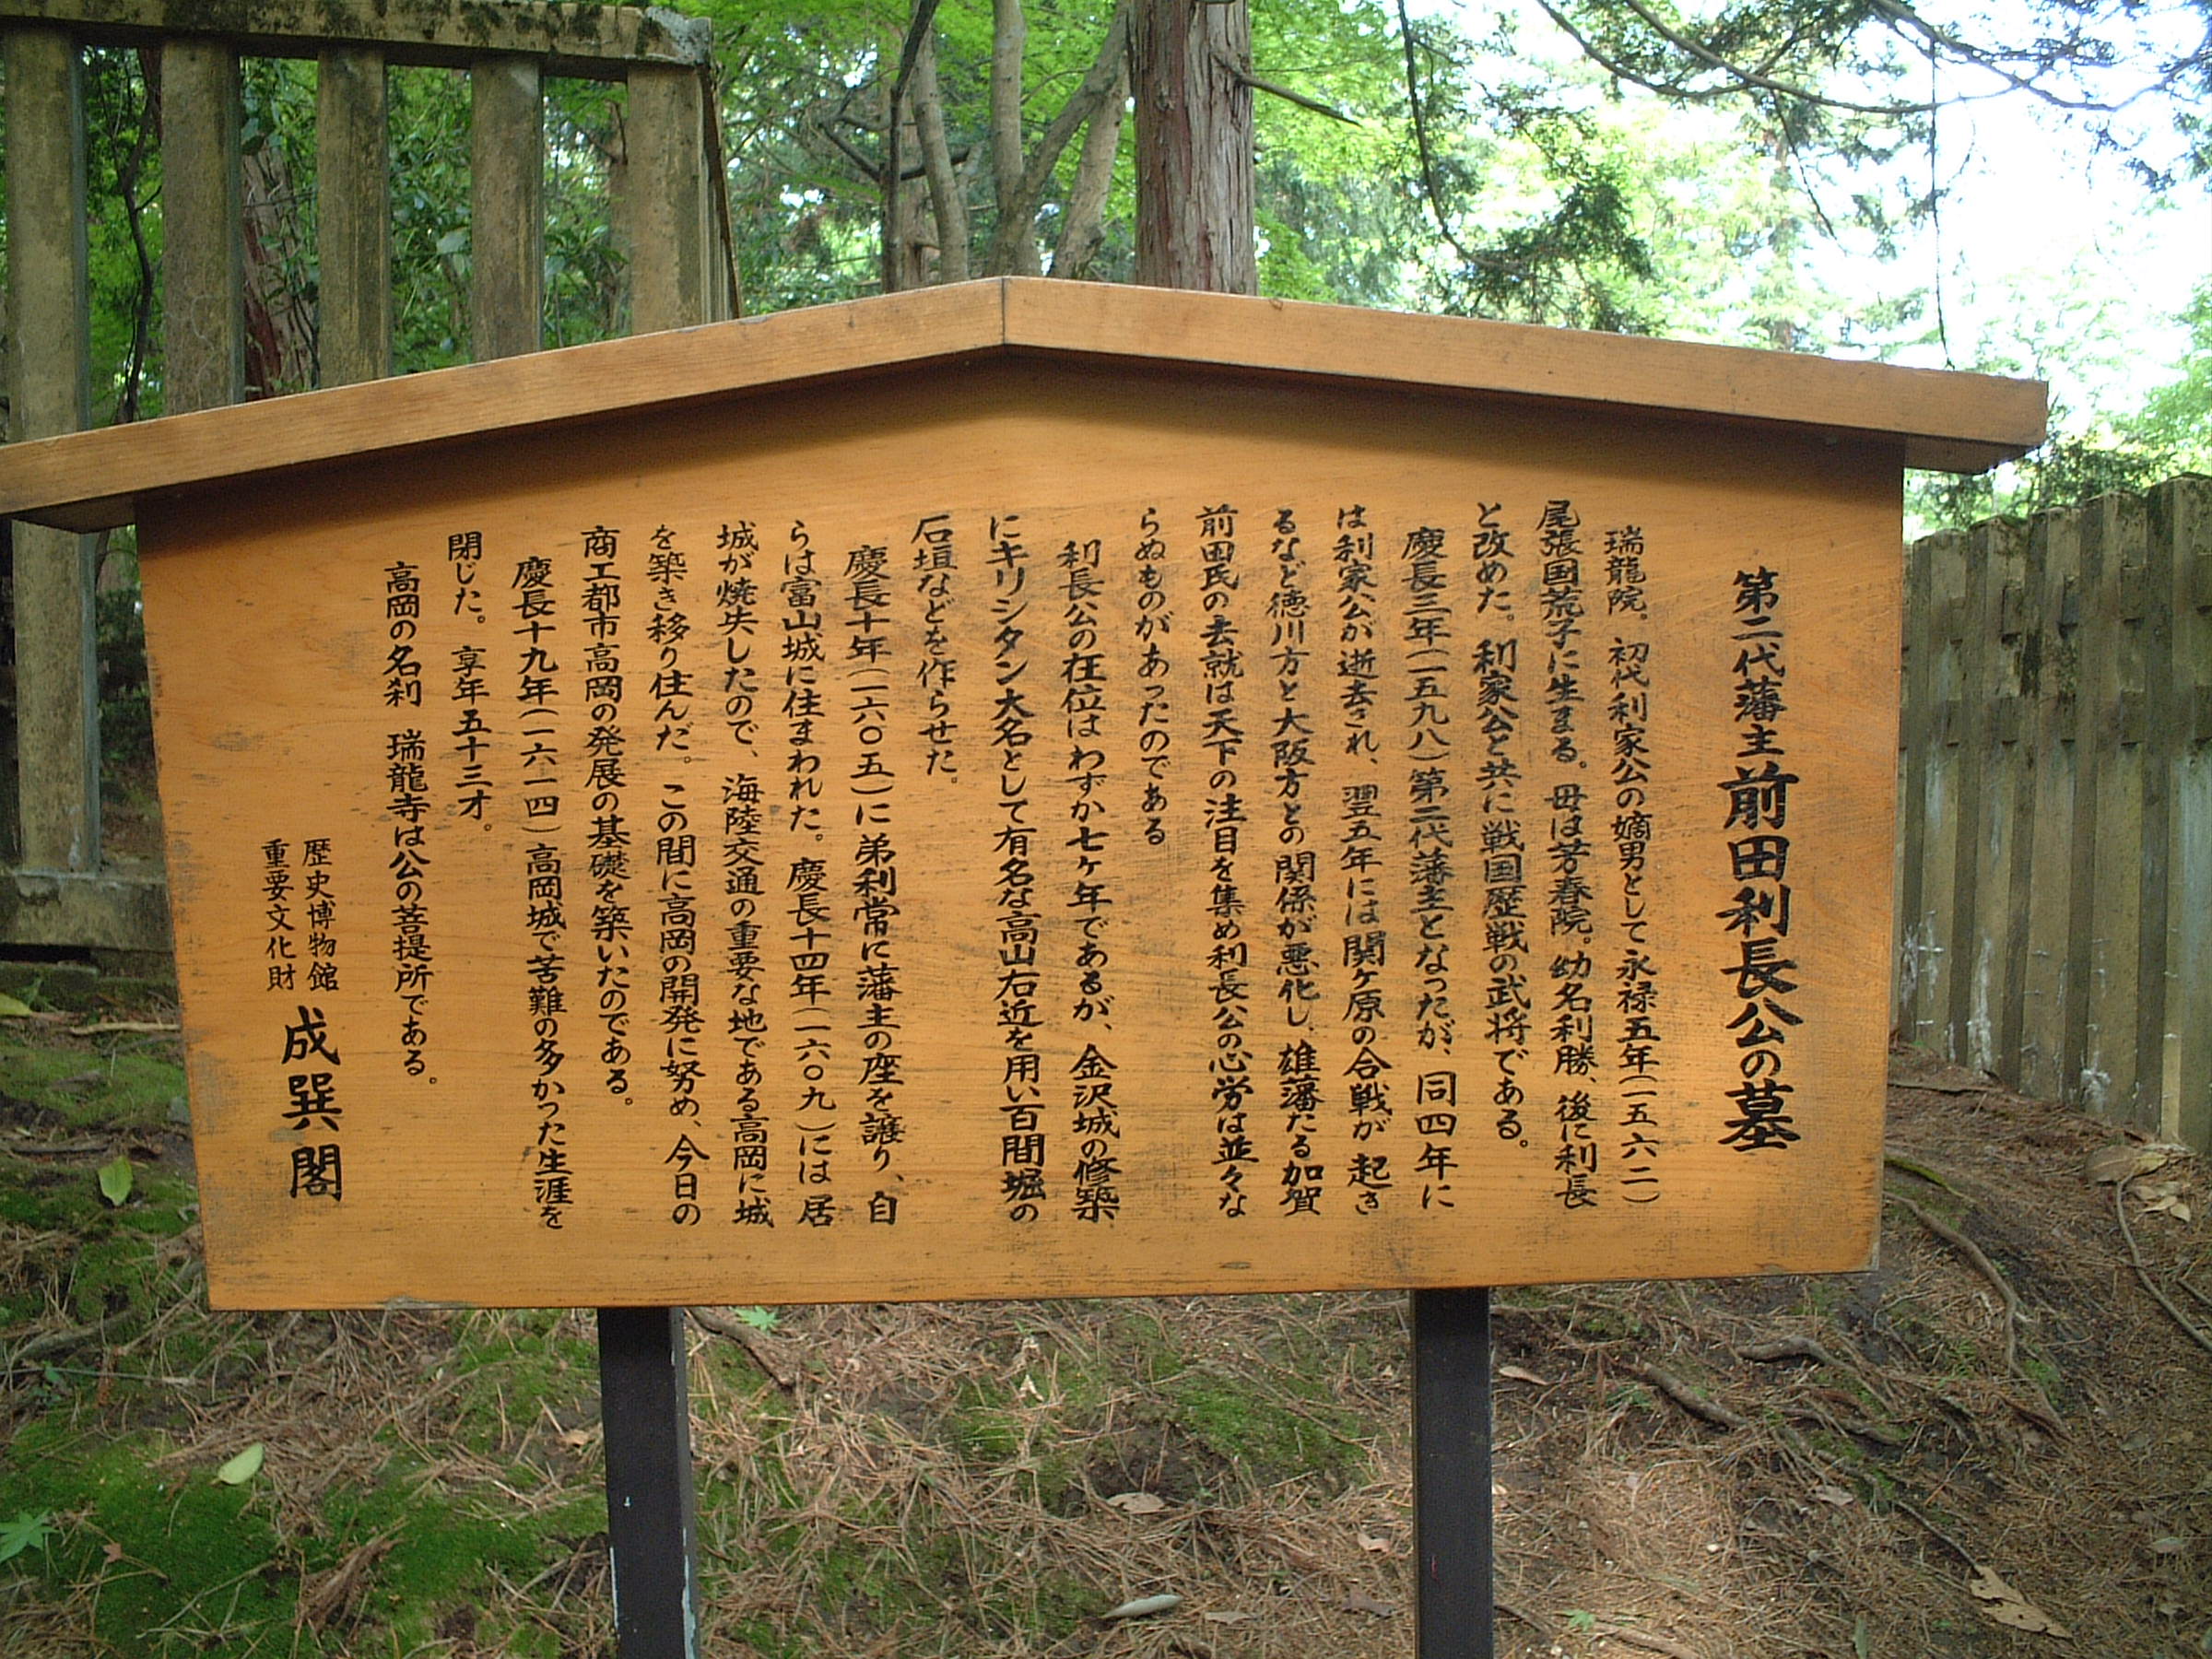 第二代藩主前田利長公の墓
瑞龍院。初代利家公の嫡男として永禄五年(一五六二)
尾張国荒子に生まる。母は芳春院。幼名利勝、後に利長
と改めた。利家公と共に戦国歴戦の武将である。
慶長三年(一五九八)第二代藩主となったが、同四年に
は利家公が逝去され、翌五年には関ヶ原の合戦が起き
るなど徳川方と大阪方との関係が悪化し、雄藩たる加賀
前田氏の去就は天下の注目を集め利長公の心労は並々な
らぬものがあったのである
利長公の在位はわずか七ヶ年であるが、金沢城の修築
にキリシタン大名として有名な高山右近を用い百間堀の
石垣などを作らせた。
慶長十年(一六〇五)に弟利常に藩主の座を譲り、自
らは富山城に住まわれた。慶長十四年(一六〇九)には居
城が焼失したので、海陸交通の重要な地である高岡に城
を築き移り住んだ。この間に高岡の開発に努め、今日の
商工都市高岡の発展の基礎を築いたのである。
慶長十九年(一六一四)高岡城で苦難の多かった生涯を
閉じた。享年五十三才。
高岡の名刹 瑞龍寺は公の菩提所である。
歴史博物館
重要文化財
成巽閣